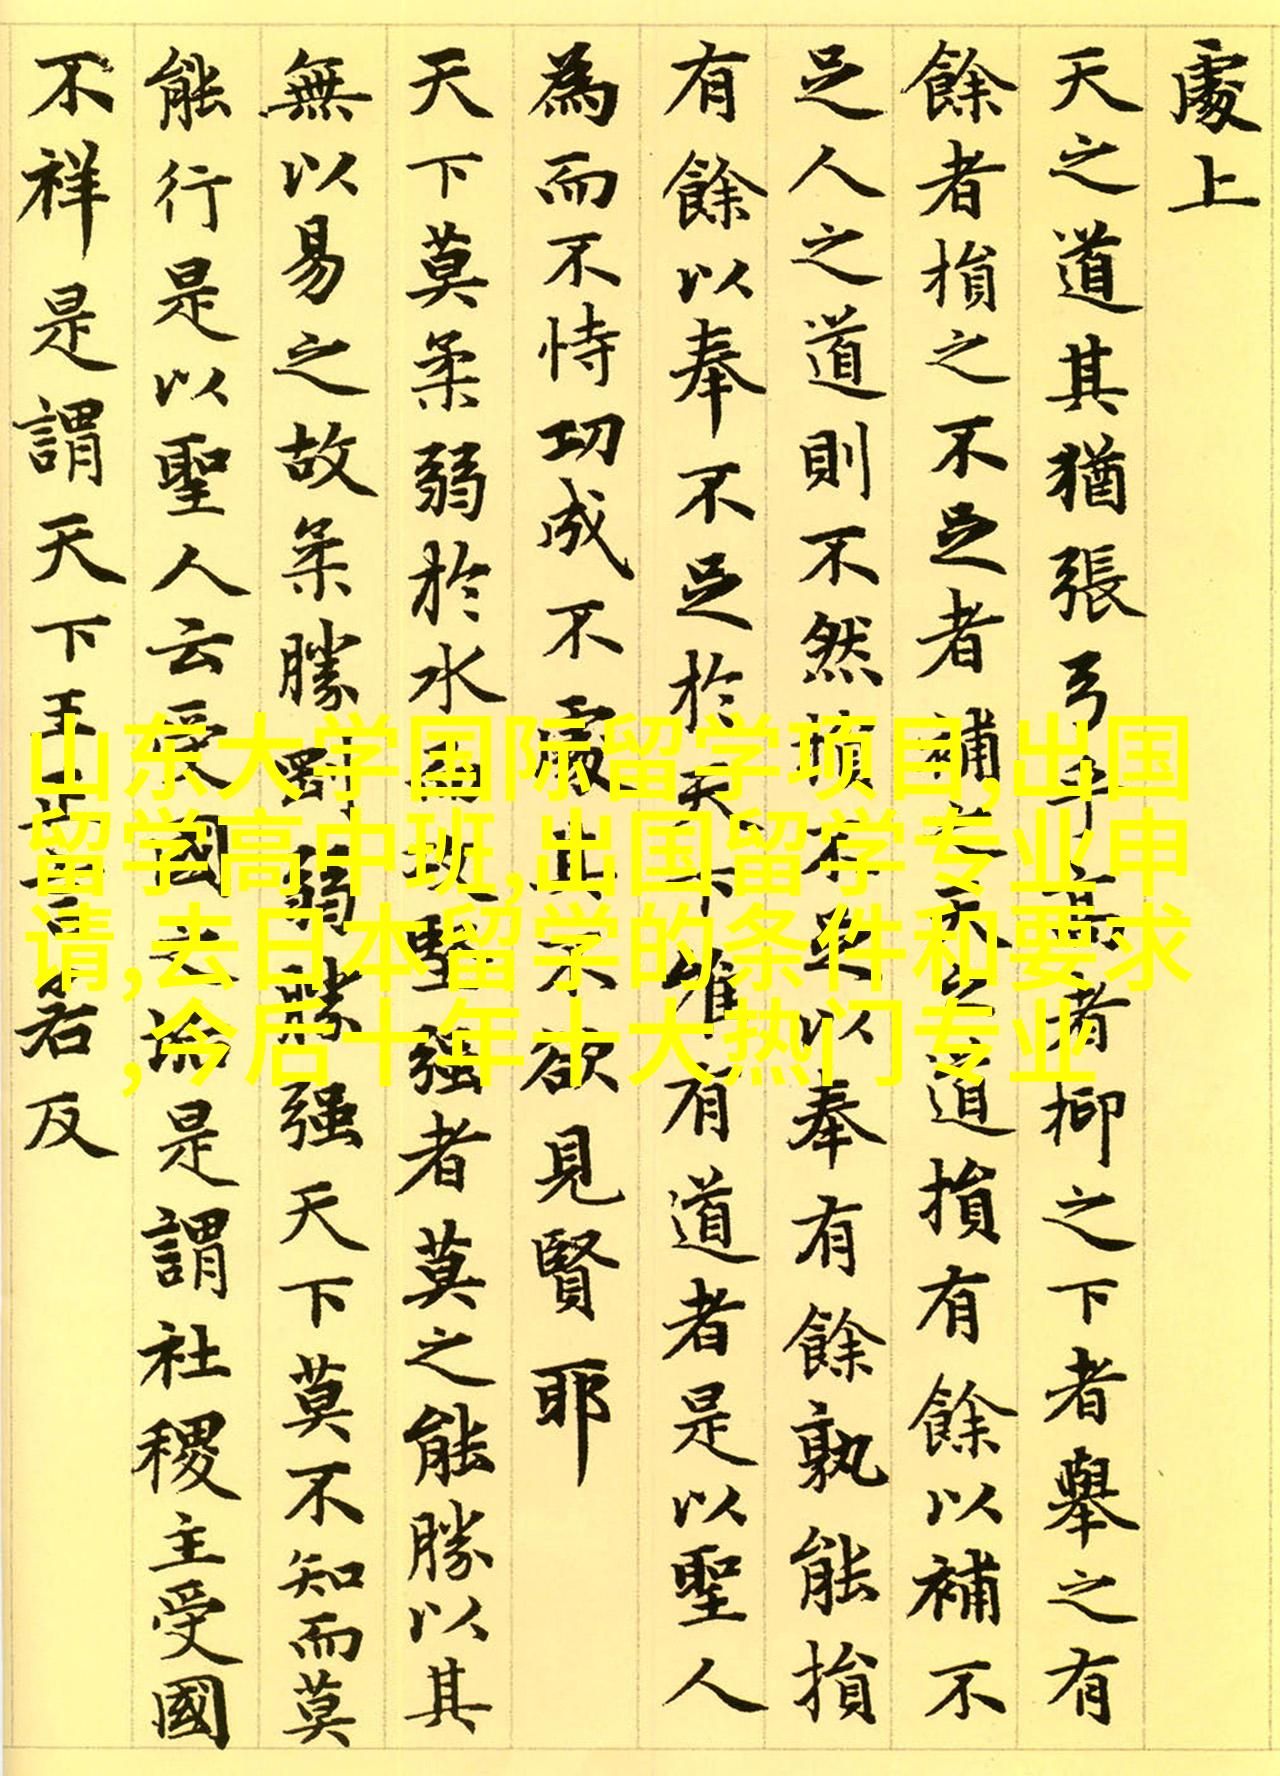 處上
天之道其猶張弓乎高者抑之下者舉之有
餘者損之不足者補之天之道損有餘以補不
足人之道則不然損不足以奉有餘孰能損
有餘以奉不足於天下唯有道者是以聖人
為而不恃功成不處其不欲見賢耶
天下莫柔弱於水而攻堅强者莫之能勝以其
無以易之故柔勝剛弱勝强天下莫不知而莫
能行是以聖人云受國之是謂社稷主受國
不祥是謂天下王正言若反
山东大学国际留学项目,出国
留学高中班,出国留学专业申
请,去日本留学的条件和要求
,今后十年十大热门专业